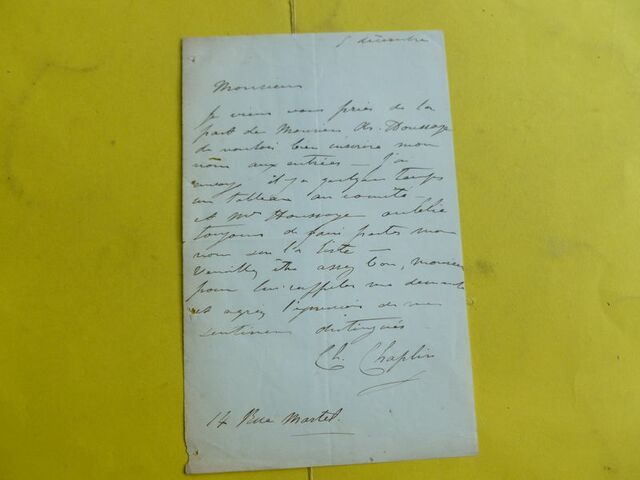 5 décembre
Monsieur
Je viens vous prier de la
part de Monsieur Ar. Houssaye
de vouloir bien inscrire mon
nom aux entrées — J'ai
envoyé il y a quelque temps
un tableau au comité —
et Mr Houssaye oublie
toujours de faire porter mon
nom sur la liste —
Veuillez être assez bon, monsieur
pour lui rappeler ma demande
et agréez l'expression de mes
sentimens distingués
Ch. Chaplin
14 Rue Martel.